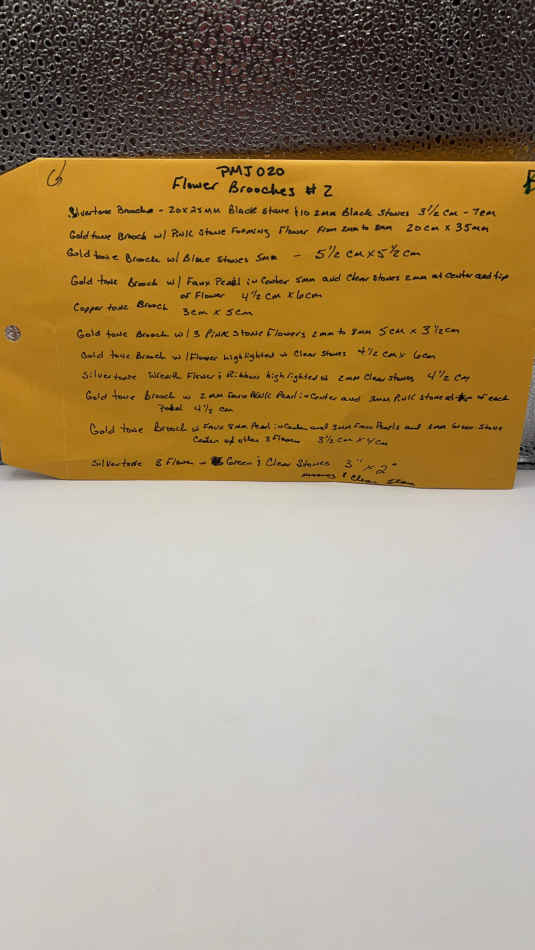 PMJ020
Flower Brooches #2
Silvertone Brooche - 20x25mm Black Stone & 10 2mm Black Stones 3½ cm - 7cm
Goldtone Brooch w/ Pink Stone Forming Flower From 2mm to 8mm 20cm x 35mm
Goldtone Brooch w/ Blue Stones 5mm - 5½ cm x 5½ cm
Gold tone Brooch w/ Faux Pearl in Center 5mm and Clear Stones 2mm at Center and tip
of Flower 4½ cm x 6cm
Copper tone Brooch 3cm x 5cm
Gold tone Brooch w/ 3 Pink Stone Flowers 2mm to 8mm 5cm x 3½cm
Gold tone Brooch w/ Flower highlighted w Clear Stones 4½ cm x 6cm
Silvertone Wreath Flower & Ribbon highlighted w 2mm Clear Stones 4½ cm
Gold tone brooch w 2mm Faux Pearl in Center and 3mm Pink Stone at of each
Petal 4½ cm
Gold tone Brooch w Faux 8mm Pearl in Center and 3mm Faux Pearls and 2mm Green Stone
Center of other 3 Flowers 3½ cm x 4cm
Silvertone 3 Flower w Green & Clear Stones 3" x 2"
& Clear